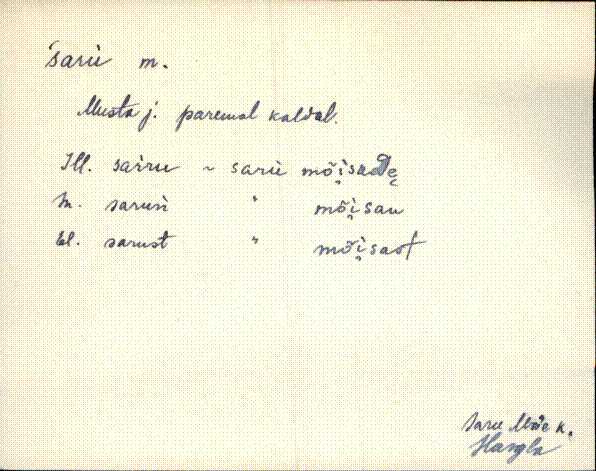 'sarù m.
Musta j. paremal kaldal.
Ill. sarru ~ sarù mõi̯sadde
In. sarun " mõi̯san
El. sarust " mõi̯sast
Saru Mäe k.
Hargla